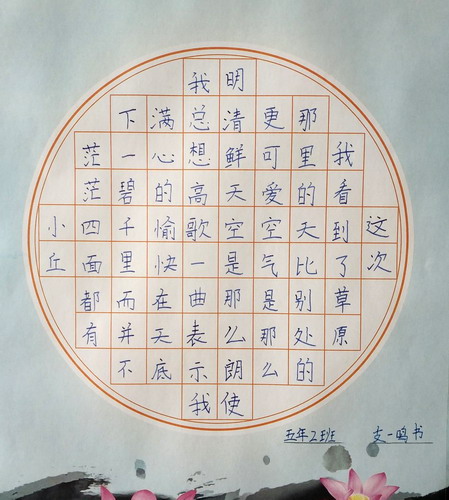 这次
我看到了草原
那里的天比别处的
更可爱空气是那么
明清鲜天空是那么朗使
我总想高歌一曲表示我
满心的愉快在天底
下一碧千里而并不
茫茫四面都有
小丘
五年2班 支一鸣书